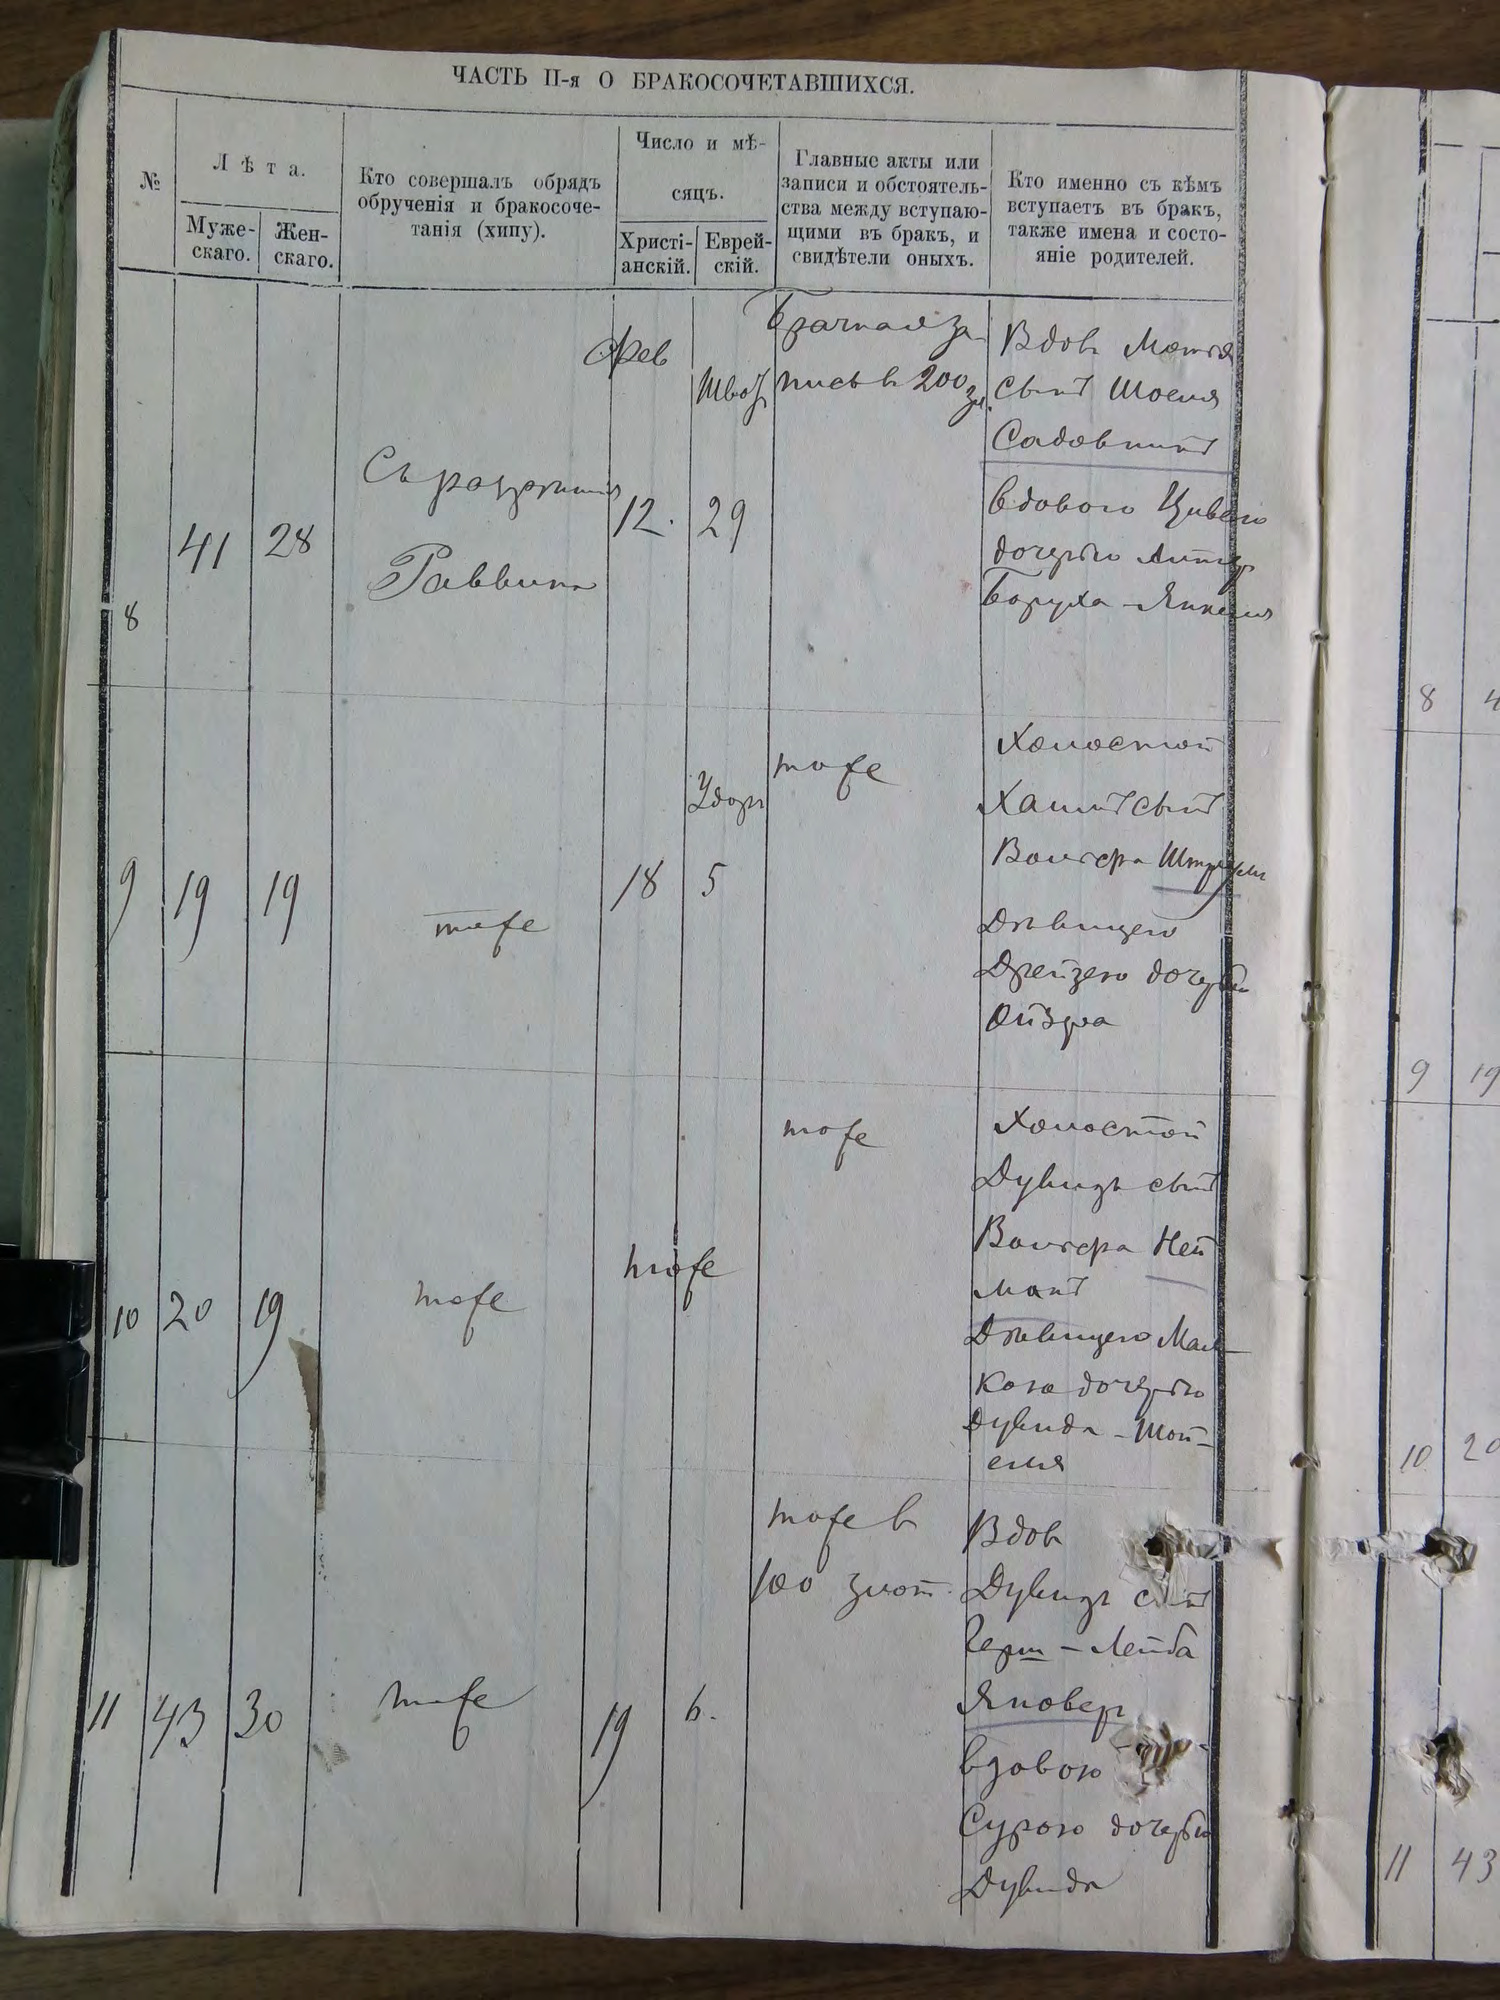 ЧАСТЬ II-я О БРАКОСОЧЕТАВШИХСЯ.
№
Лѣта.
Муже-
скаго.
Жен-
скаго.
Кто совершалъ обрядъ
обрученія и бракосоче-
танія (хипу).
Число и мѣ-
сяцъ.
Христі-
анскій.
Еврей-
скій.
Главные акты или
записи и обстоятель-
ства между вступаю-
щими въ бракъ, и
свидѣтели оныхъ.
Кто именно съ кѣмъ
вступаетъ въ бракъ,
также имена и состо-
яніе родителей.
8
41
28
Съ разрѣшенія
Раввина
Фев
12.
Швот
29
Брачная за
пись в 200 зл.
Вдов Мотя
сынъ Шоеля
Садовникъ
вдовою Цивею
дочерью
Боруха-Янкеля
9
19
19
тоже
18
Удоръ
5
тоже
Холостой
Хаимъ сынъ
Вольфа
Дѣвицею
Дрейзею дочерью
Айзера
10
20
19
тоже
тоже
тоже
Холостой
Дувидъ сынъ
Вольфа Ней
манъ
Дѣвицею Маль-
кою дочерью
Дувида-Шой-
еля
11
43
30
тоже
19
6.
тоже в
100 злот.
Вдов
Дувидъ сынъ
Герш-Лейба
Яновер
вдовою
Сурою дочерью
Дувида
8
4
9
19
10
20
11
43